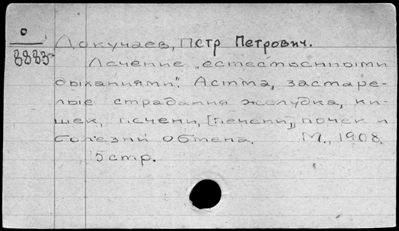 0
8885
Докучаев, Петр Петрович.
Лечение "естественными
дыханиями". Астма, застаре-
лые страдания желудка, ки-
шек, печени, [печени,] почек и
болезни обмена. М., 1908.
5 стр.